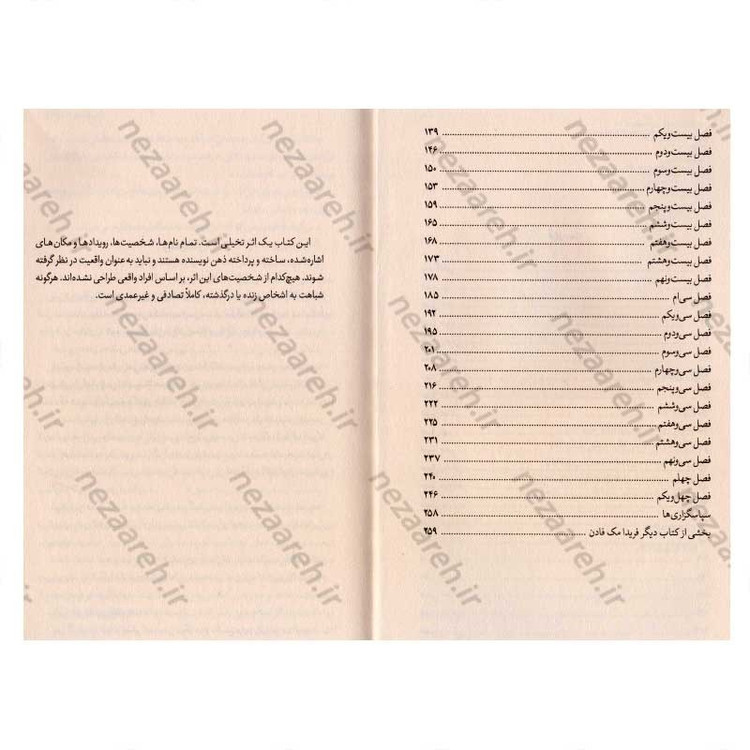 فصل بیست‌ویکم ۱۳۹
فصل بیست‌ودوم ۱۴۶
فصل بیست‌وسوم ۱۵۰
فصل بیست‌وچهارم ۱۵۳
فصل بیست‌وپنجم ۱۵۹
فصل بیست‌وششم ۱۶۵
فصل بیست‌وهفتم ۱۶۸
فصل بیست‌وهشتم ۱۷۳
فصل بیست‌ونهم ۱۷۸
فصل سی‌ام ۱۸۵
فصل سی‌ویکم ۱۹۲
فصل سی‌ودوم ۱۹۵
فصل سی‌وسوم ۲۰۱
فصل سی‌وچهارم ۲۰۸
فصل سی‌وپنجم ۲۱۶
فصل سی‌وششم ۲۲۲
فصل سی‌وهفتم ۲۲۵
فصل سی‌وهشتم ۲۳۱
فصل سی‌ونهم ۲۳۷
فصل چهلم ۲۴۰
فصل چهل‌ویکم ۲۴۶
سپاسگزاری‌ها ۲۵۸
بخشی از کتاب دیگر فریدا مک فادن ۲۵۹
این کتاب یک اثر تخیلی است. تمام نام‌ها، شخصیت‌ها، رویدادها و مکان‌های
اشاره‌شده، ساخته و پرداخته ذهن نویسنده هستند و نباید به عنوان واقعیت در نظر گرفته
شوند. هیچ‌کدام از شخصیت‌های این اثر، بر اساس افراد واقعی طراحی نشده‌اند. هرگونه
شباهت به اشخاص زنده یا درگذشته، کاملاً تصادفی و غیرعمدی است.
nezaareh.ir